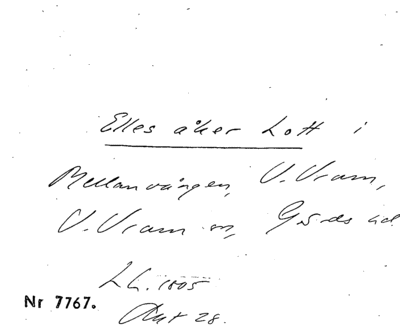 Elles åker Lott i
Mellanvången, V. Vram,
V. Vram sn, Gärds hd
LH. 1805
Akt 28.
Nr 7767.